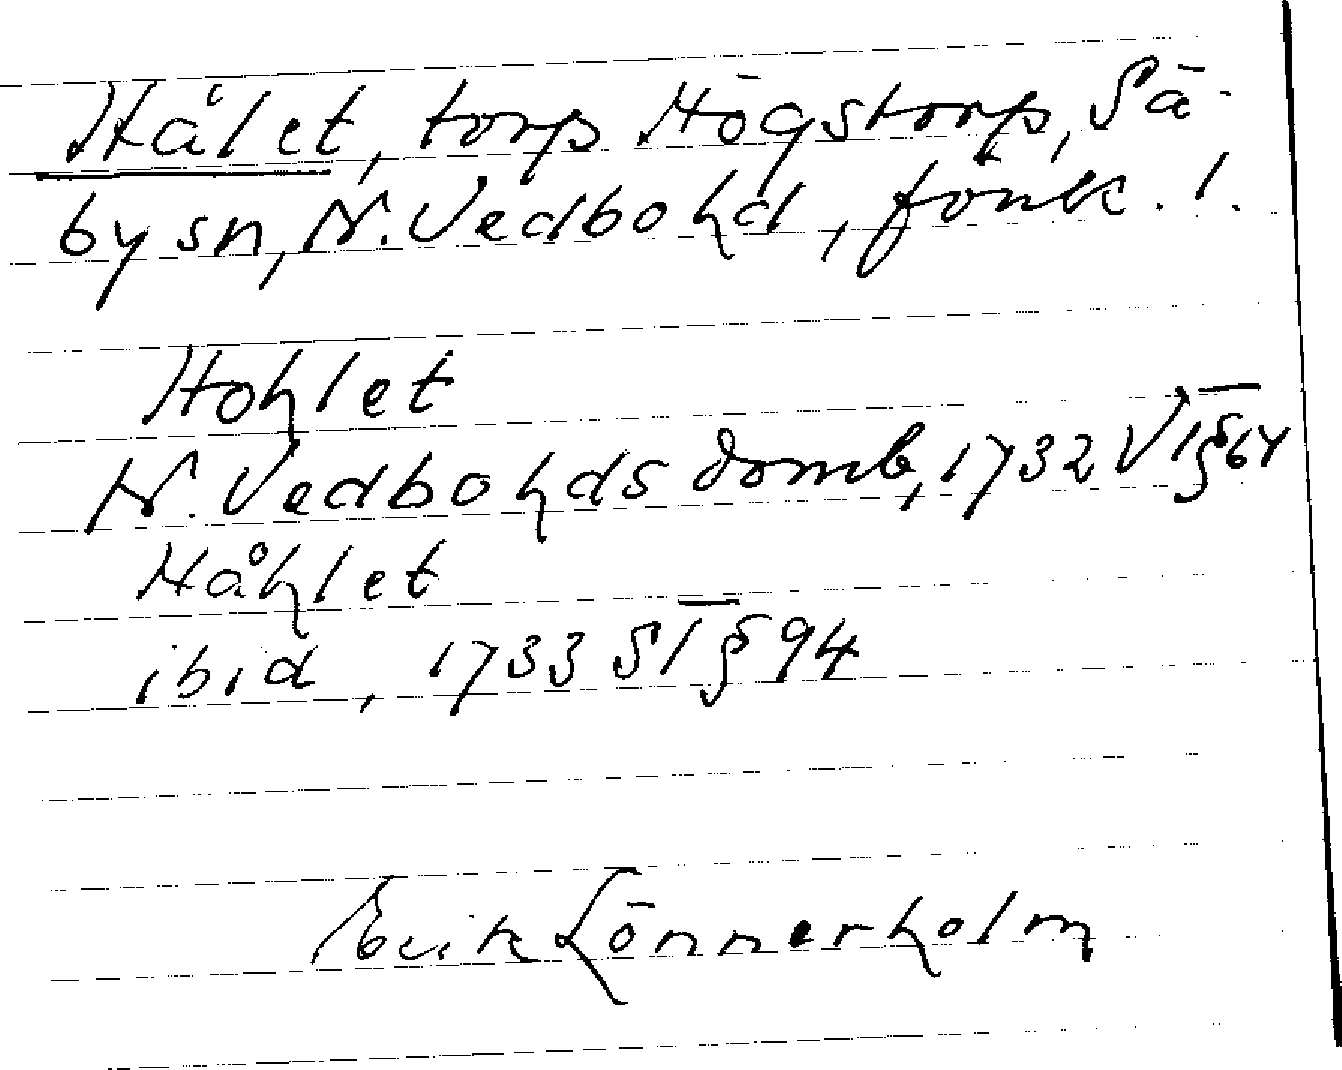 Hålet, torp Högstorp, Sä-
by sn, N. Vedbo hd, Jönk. l.
Hohlet
N. Vedbo hds domb, 1732 V 1 § 64
Håhlet
ibid, 1733 S 1 § 94
Erik Lönnerholm